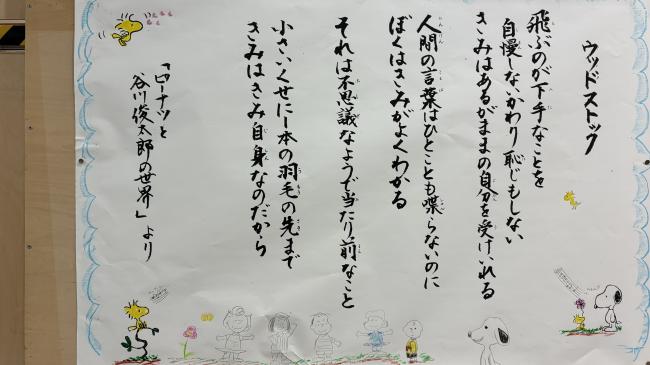 ウッドストック
飛ぶのが下手なことを
自慢しないかわり恥じもしない
きみはあるがままの自分を受けいれる
人間の言葉はひとことも喋らないのに
ぼくはきみがよくわかる
それは不思議なようで当たり前なこと
小さいくせに一本の羽毛の先まで
きみはきみ自身なのだから
「ピーナツと
谷川俊太郎の世界」より